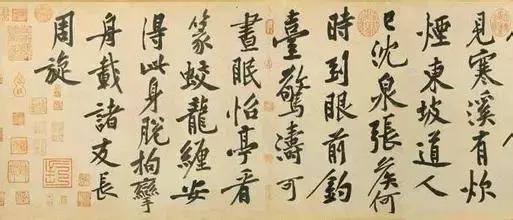 見寒溪有炊
煙東坡道人
已沈泉張侯何
時到眼前釣
臺驚濤可
晝眠怡亭看
篆蛟龍纏安
得此身脫拘攣
舟載諸友長
周旋